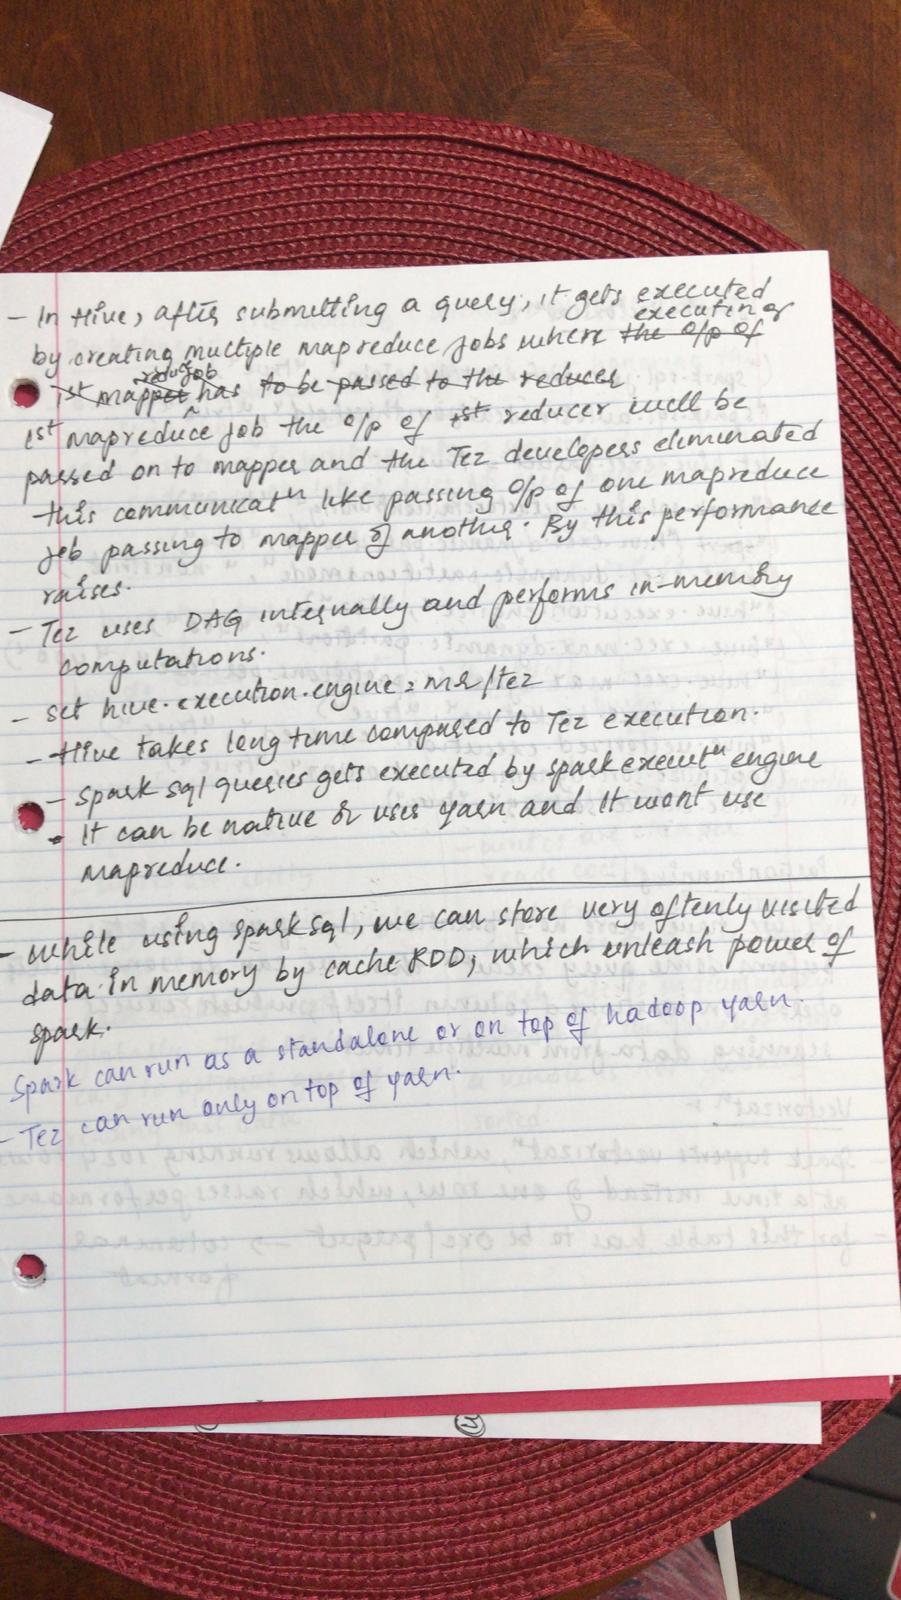 - In Hive, after submitting a query, it gets executed
by creating multiple mapreduce jobs where the o/p of executing of
1st mapper reduce job has to be passed to the reducer
1st mapreduce job the o/p of 1st reducer will be
passed on to mapper and the Tez developers eliminated
this communicatn like passing o/p of one mapreduce
job passing to mapper of another. By this performance
raises.
- Tez uses DAG internally and performs in-memory
computations.
- set hive.execution.engine = mr/tez
- Hive takes long time compared to Tez execution.
- Spark sql queries gets executed by spark executn engine
- It can be native or uses yarn and it wont use
mapreduce.
- While using spark sql, we can store very oftenly visited
data in memory by cache RDD, which unleash power of
spark.
Spark can run as a standalone or on top of hadoop yarn.
- Tez can run only on top of yarn.